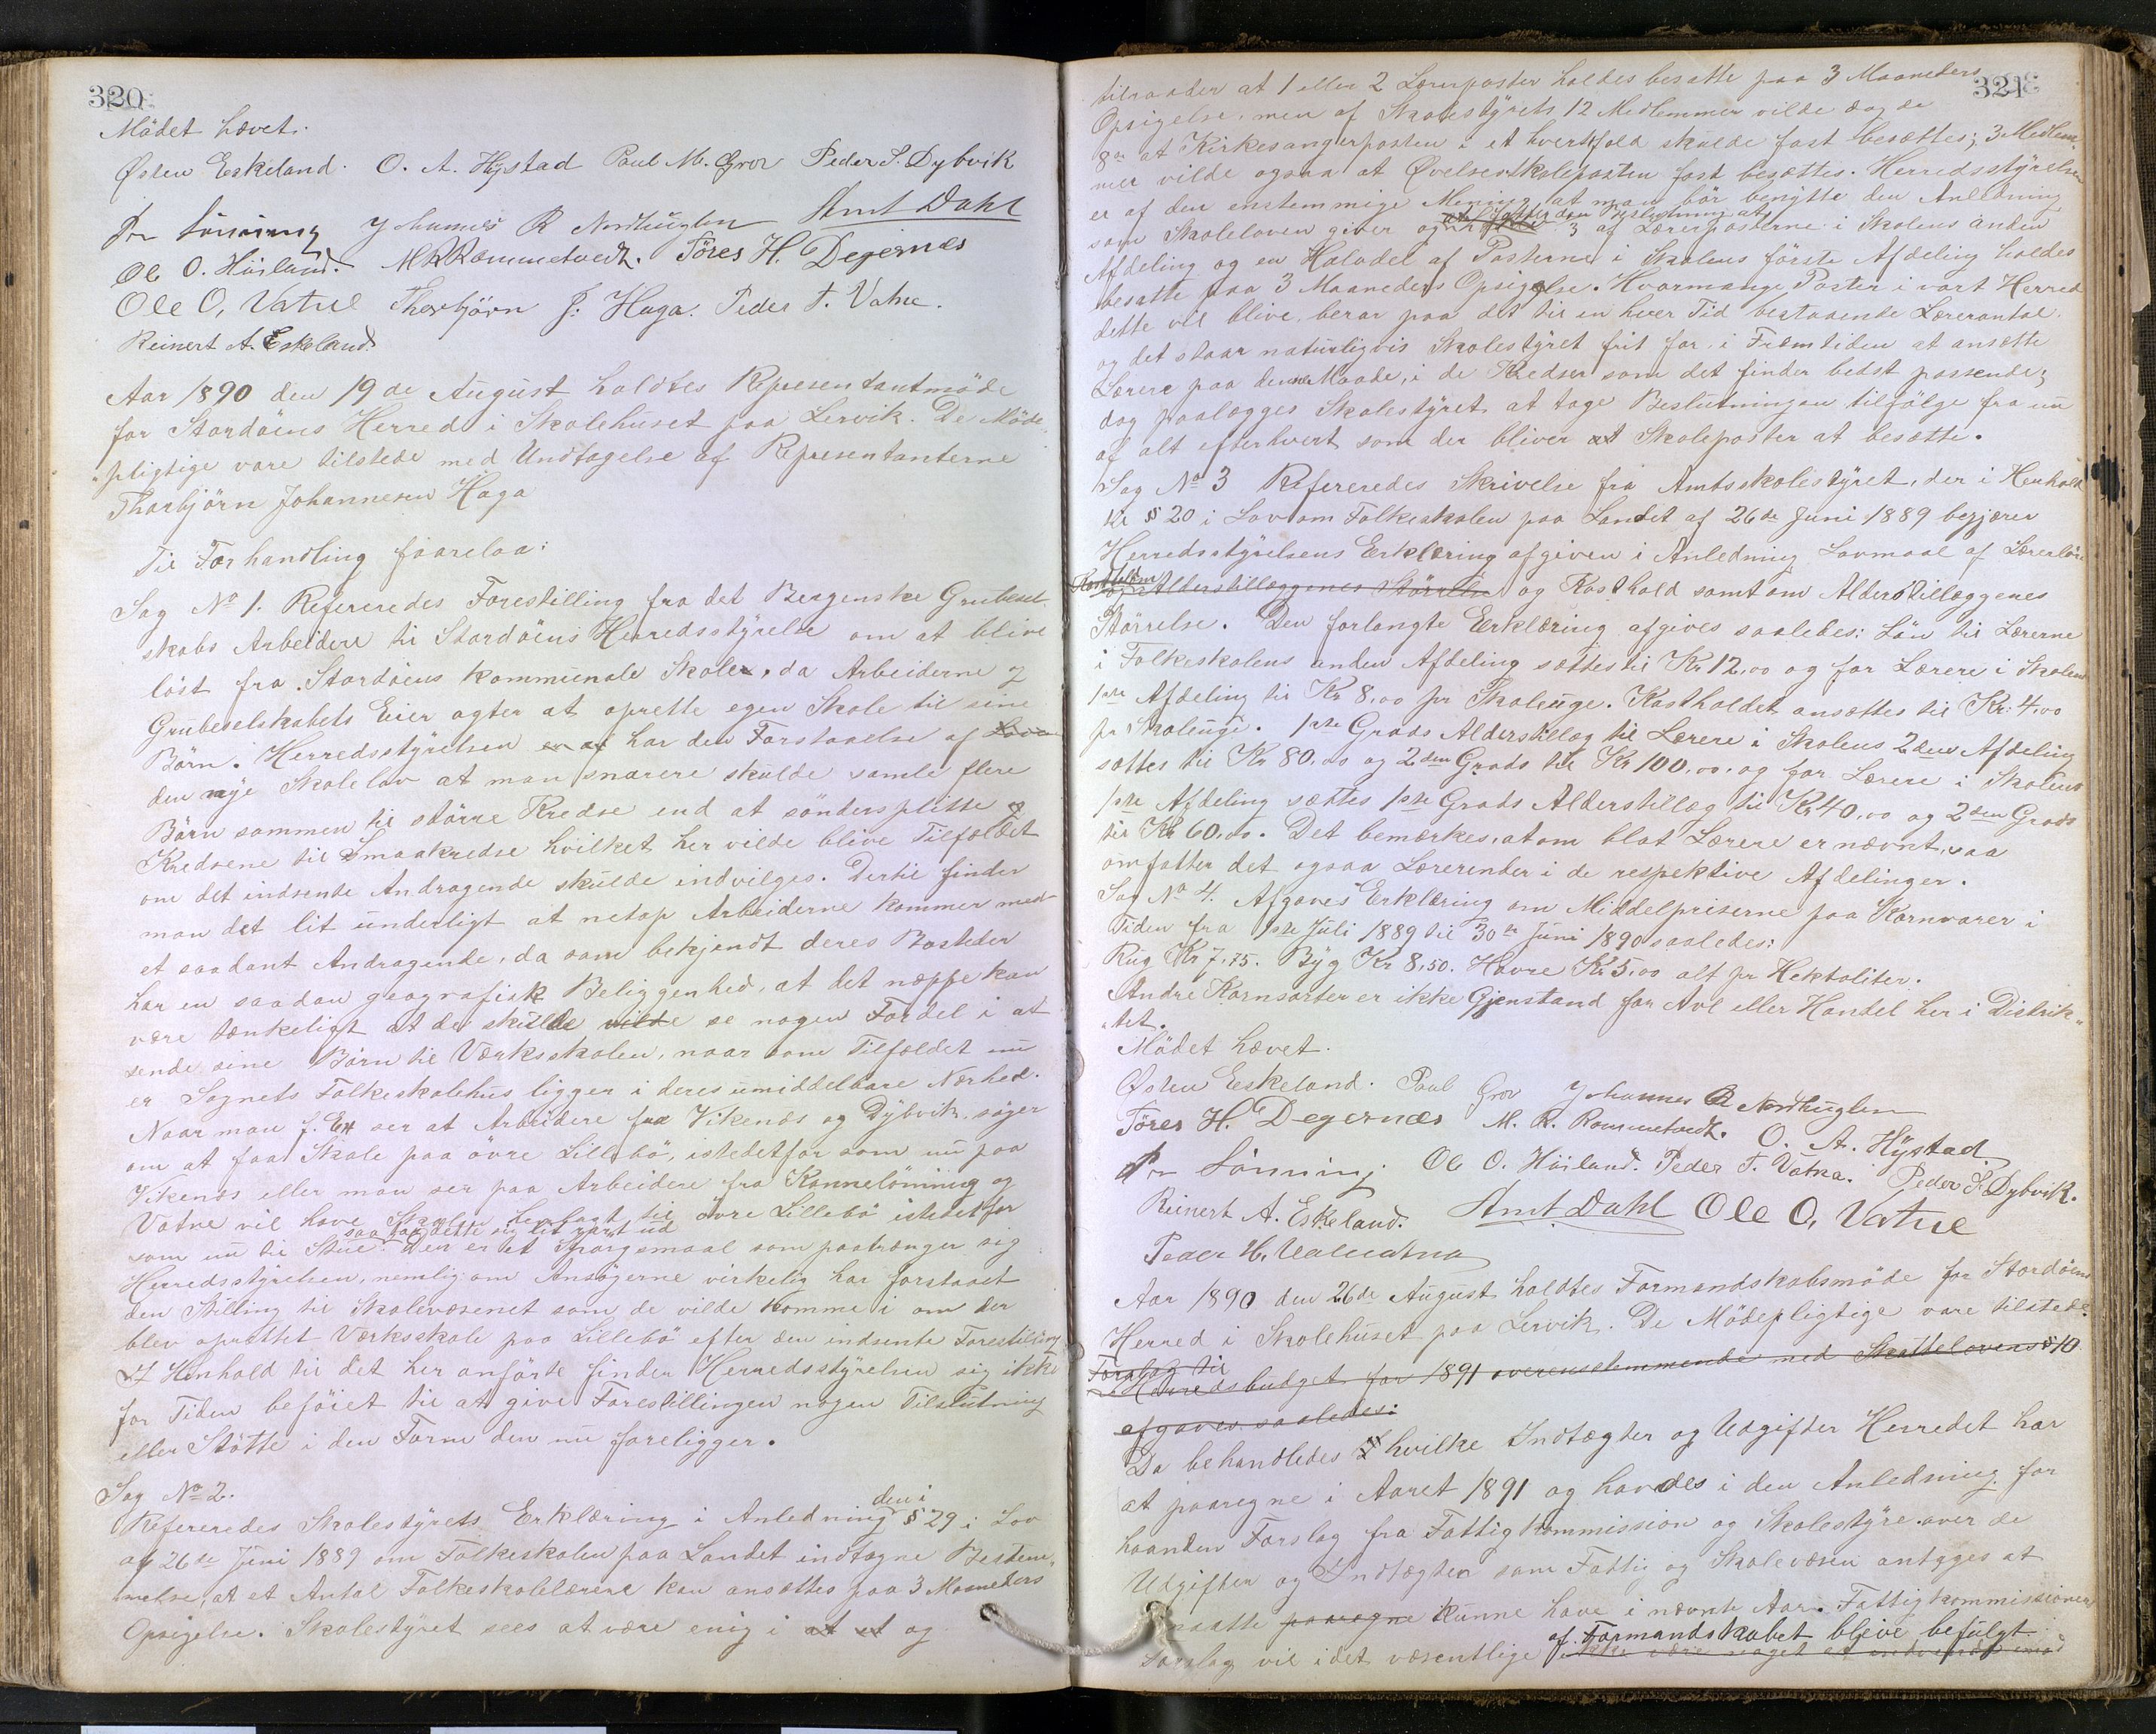 320
Mödet hævet.
Østen Eskeland. O. A. Hystad Paul M. Grov Peder S. Dybvik
Johannes R Nordhuglen Amt Dahl
Ole O. Hüsland. M R Rommetvedt. Töres H. Degernes
Ole O, Vatne Thorbjörn J. Haga. Peder T. Vatne.
Reinert A. Eskeland.
Aar 1890 den 19de August holdtes Representantmöde
for Stordöens Herred i Skolehuset paa Lervik. De Möde-
pligtige vare tilstede med Undtagelse af Representanterne
Thorbjörn Johannesen Haga
Til Forhandling foarelaa:
Sag No 1. Refereredes Forestilling fra det Bergenske Grubesel-
skabs Arbeidere til Stordöens Herredsstyrelse om at blive
löst fra Stordöens kommunale Skole, da Arbeiderne og
Grubeselskabets Eier agter at oprette egen Skole til sine
Börn. Herredsstyrelsen er af har den Forstaaelse af Loven
den nye Skolelov at man snarere skulde samle flere
Börn sammen til större Kredse end at söndersplitte
Kredsene til Smaakredse hvilket her vilde blive Tilfældet
om det indsente Andragende skulde indvilges. Dertil finder
man det lit underligt at netop Arbeiderne kommer med
et saadant Andragende, da som bekjendt deres Bosteder
har en saadan geografisk Beliggenhed, at det næppe kan
være tænkeligt at de skulde vilde se nogen Fordel i at
sende sine Börn til Værksskolen, naar som Tilfældet nu
er Sognets Folkeskolehus ligger i deres umiddelbare Nærhed.
Naar man f. Ex ser at Arbeidere fra Vikenæs og Dybvik söger
om at faa Skole paa övre Lillebö, istedetfor som nu paa
Vikenæs eller man ser paa Arbeidere fra Kannelönning og
Vatne vil have Skolen henlagt til övre Lillebö istedetfor
saa tar dette sig lit rart ud
som nu til Stue. Den er et Spörgsmaal som paatrænger sig
Herredsstyrelsen, nemlig om Ansögerne virkelig har forstaaet
den Stilling til Skolevæsenet som de vilde komme i om der
blev oprettet Værksskole paa Lillebö efter den indsente Forestilling
I Henhold til det her anförte finder Herredsstyrelsen sig ikke
for Tiden beföiet til at give Forestillingen nogen Tilslutning
eller Stötte i den Form den nu foreligger.
Sag No 2.
den i
Refereredes Skolestyrets Erklæring i Anledning § 29 i Lov
af 26de Juni 1889 om Folkeskolen paa Landet indtagne Bestem-
melse, at et Antal Folkeskolelærere kan ansættes paa 3 Maaneders
Opsigelse. Skolestyret sees at være enig i at et og
321
tilraader at 1 eller 2 Lærerposter holdes besatte paa 3 Maaneders
Opsigelse, men af Skolestyrets 12 Medlemmer vilde dog de
8de at Kirkesangerposten i et hvert Fald skulde fast besættes; 3 Medlem-
mer vilde ogsaa at Øvelsesskoleposten fast besættes. Herredsstyrelsen
er af den enstemmige Mening at man bör benytte den Anledning
fatter den Beslutning at
som Skoleloven giver og 3 af Lærerposterne i Skolens anden
Afdeling og en Halvdel af Posterne i Skolens förste Afdeling holdes
besatte paa 3 Maaneders Opsigelse. Hvormange Poster i vort Herred
dette vil blive, beror paa det til en hver Tid bestaaende Lærerantal.
og det staar naturligvis Skolestyret frit for, i Fremtiden at ansætte
Lærere paa denne Maade, i de Kredser som det finder bedst passende;
dog paalægges Skolestyret at tage Beslutningen tilfölge fra nu
af alt efterhvert som der bliver at Skoleposter at besætte.
Sag No 3 Refereredes Skrivelse fra Amtsskolestyret, der i Henhold
til § 20 i Lov om Folkeskolen paa Landet af 26de Juni 1889 begjærer
Herredsstyrelsens Erklæring afgiven i Anledning Lovmaal af Lærerlön
og Alderstillæggenes Störrelse og Kosthold samt om Alderstillæggenes
Störrelse. Den forlangte Erklæring afgives saaledes: Lön til Lærerne
i Folkeskolens anden Afdeling sættes til Kr 12,00 og for Lærere i Skolens
1ste Afdeling til Kr 8,00 pr Skoleuge. Kostholdet ansættes til Kr. 4,00
pr Skoleuge. 1ste Grads Alderstillæg til Lærere i Skolens 2den Afdeling
sættes til Kr 80,00 og 2den Grads til Kr 100,00, og for Lærere i Skolens
1ste Afdeling sættes 1ste Grads Alderstillæg til Kr 40,00 og 2den Grads
til Kr 60,00. Det bemærkes, at om blot Lærere er nævnt, saa
omfatter det ogsaa Lærerinder i de respektive Afdelinger.
Sag No 4. Afgaves Erklæring om Middelpriserne paa Kornvarer i
Tiden fra 1ste Juli 1889 til 30te Juni 1890 saaledes:
Rug Kr 7,75. Byg Kr 8,50. Havre Kr 5,00 alt pr Hektoliter.
Andre Kornsorter er ikke Gjenstand for Avl eller Handel her i Distrik-
tet.
Mödet hævet.
Østen Eskeland. Paul Grov Johannes R Nordhuglen
Töres H. Degernæs M. R. Rommetvedt. O. A. Hystad
Ole O. Hüsland. Peder T. Vatna. Peder S. Dybvik.
Reinert A. Eskeland. Amt Dahl Ole O, Vatne
Peder H. Valvatna
Aar 1890 den 26de August holdtes Formandskabsmöde for Stordöens
Herred i Skolehuset paa Lervik. De Mödepligtige vare tilstede.
Forslag til
Herredsbudget for 1891 overensstemmende med Skattelovens § 10
afgaves saaledes:
Da behandledes hvilke Indtægter og Udgifter Herredet har
at paaregne i Aaret 1891 og havdes i den Anledning for
haanden Forslag fra Fattigkommission og Skolestyre over de
Udgifter og Indtægter som Fattig og Skolevæsen antages at
maatte paaregne kunne have i nævnte Aar. Fattigkommissionens
af Formandskabet blive befulgt
Forslag vil i det væsentlige